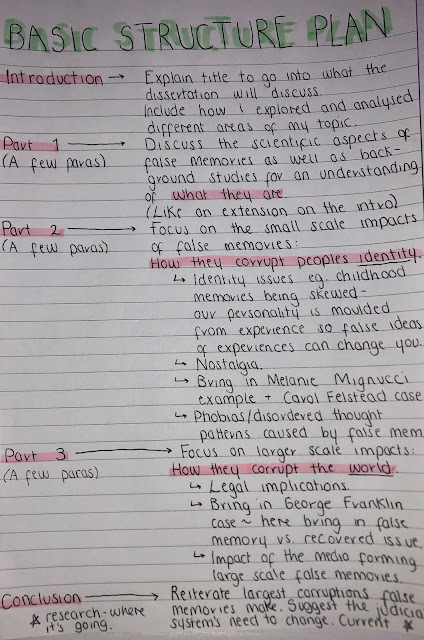 BASIC STRUCTURE PLAN
Introduction → Explain title to go into what the
dissertation will discuss.
Include how i explored and analysed
different areas of my topic.
Part 1 → Discuss the scientific aspects of
(A few paras) false memories as well as back-
ground studies for an understanding
of what they are.
(Like an extension on the intro)
Part 2 → Focus on the small scale impacts
(A few paras) of false memories:
How they corrupt peoples identity.
↳ Identity issues eg. childhood
memories being skewed-
our personality is moulded
from experience so false ideas
of experiences can change you.
↳ Nostalgia.
↳ Bring in Melanie Mignucci
example + Carol Felstead case
↳ Phobias/disordered thought
patterns caused by false mem
Part 3 → Focus on larger scale impacts:
(A few paras) How they corrupt the world.
↳ Legal implications.
↳ Bring in George Franklin
case ~ here bring in false
memory vs. recovered issue.
↳ Impact of the media forming
large scale false memories.
Conclusion → Reiterate largest corruptions false
☆ research-where memories make. Suggest the judicia
it's going. system's need to change. Current ☆